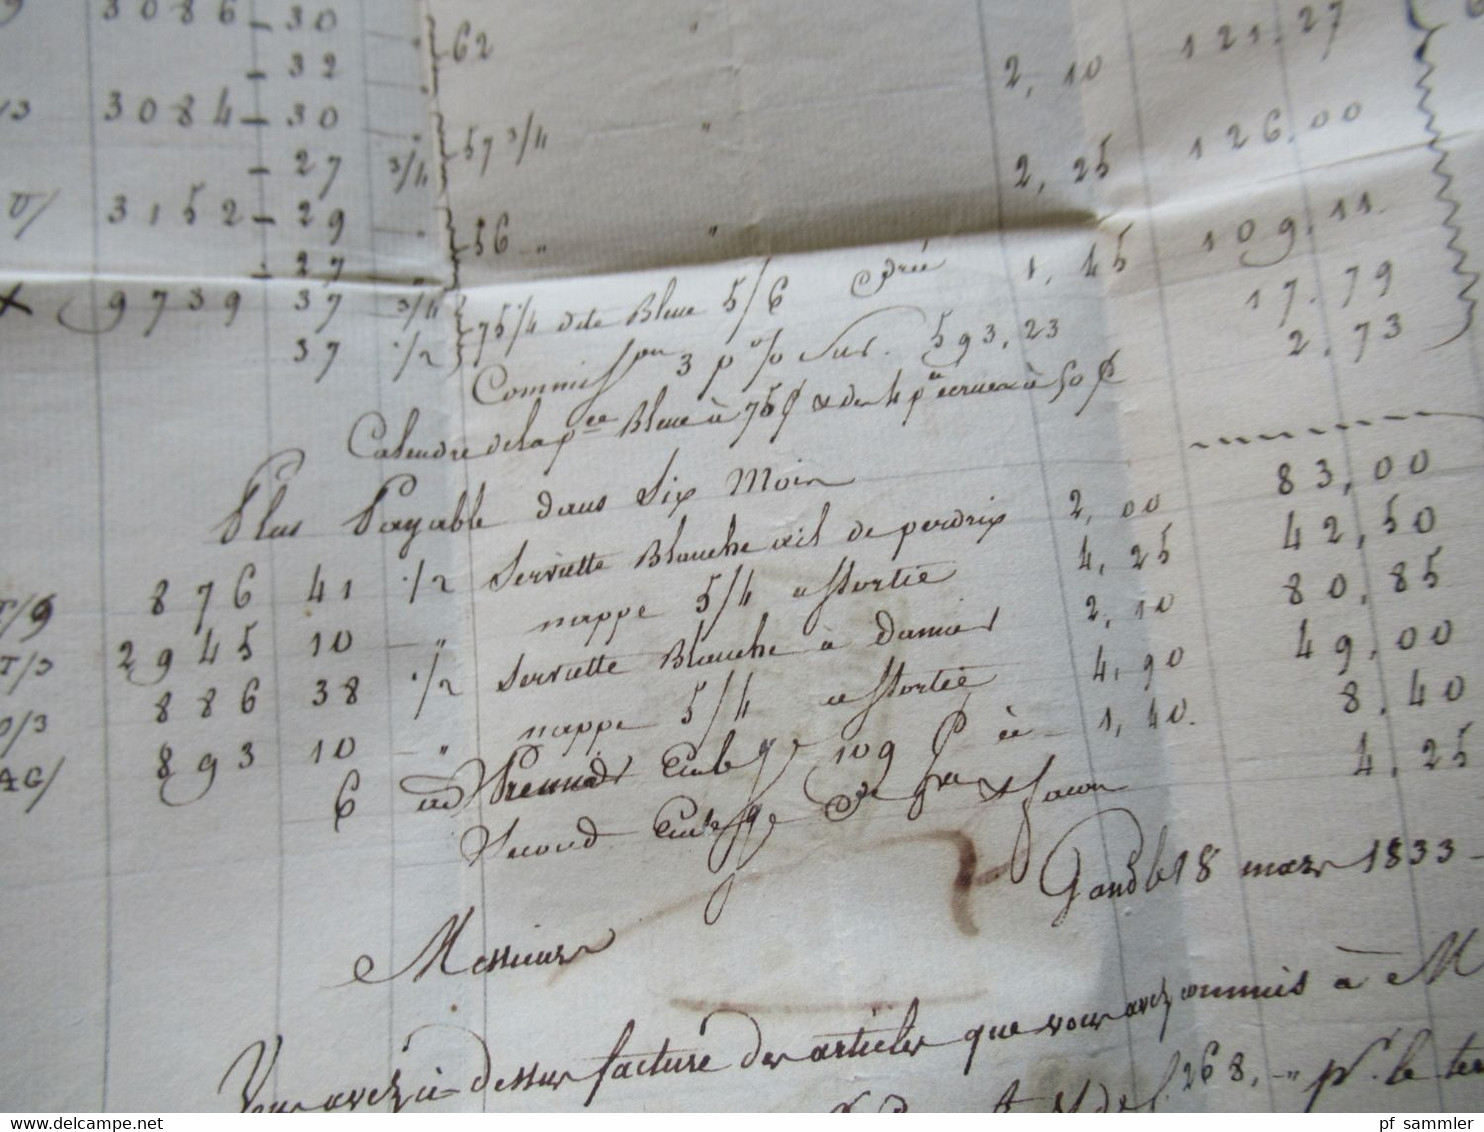 3086 - 30 62 " 2,10 121.27
- 32
3084 - 30 57 3/4 " 2,25 126.00
- 27 3/4
3152 - 29 56 " 1,45 109.11
- 27
9739 37 3/4 75 1/4 dito Bleue 5/6 17.79
37 1/2 Commiss.on 3 p % Sur 593,23 2,73
Calendre de la p.ce Bleue à 75 & de 4 p.ce à 50
Plus Payable dans Six Mois
876 41 1/2 Serviette Blanche œil de perdrix 2,00 83,00
2945 10 - " nappe 5/4 assortie 4,25 42,50
886 38 1/2 Serviette Blanche à Damier 2,10 80,85
893 10 - " nappe 5/4 assortie 4,90 49,00
6 Premier Embge 109 à - 1,40. 8,40
Second Embge & façon 4,25
Gand le 18 mars 1833 -
Messieurs
Vous avez ci-dessus facture des articles que vous avez commis à M
268, - " p.r le
pf_sammler